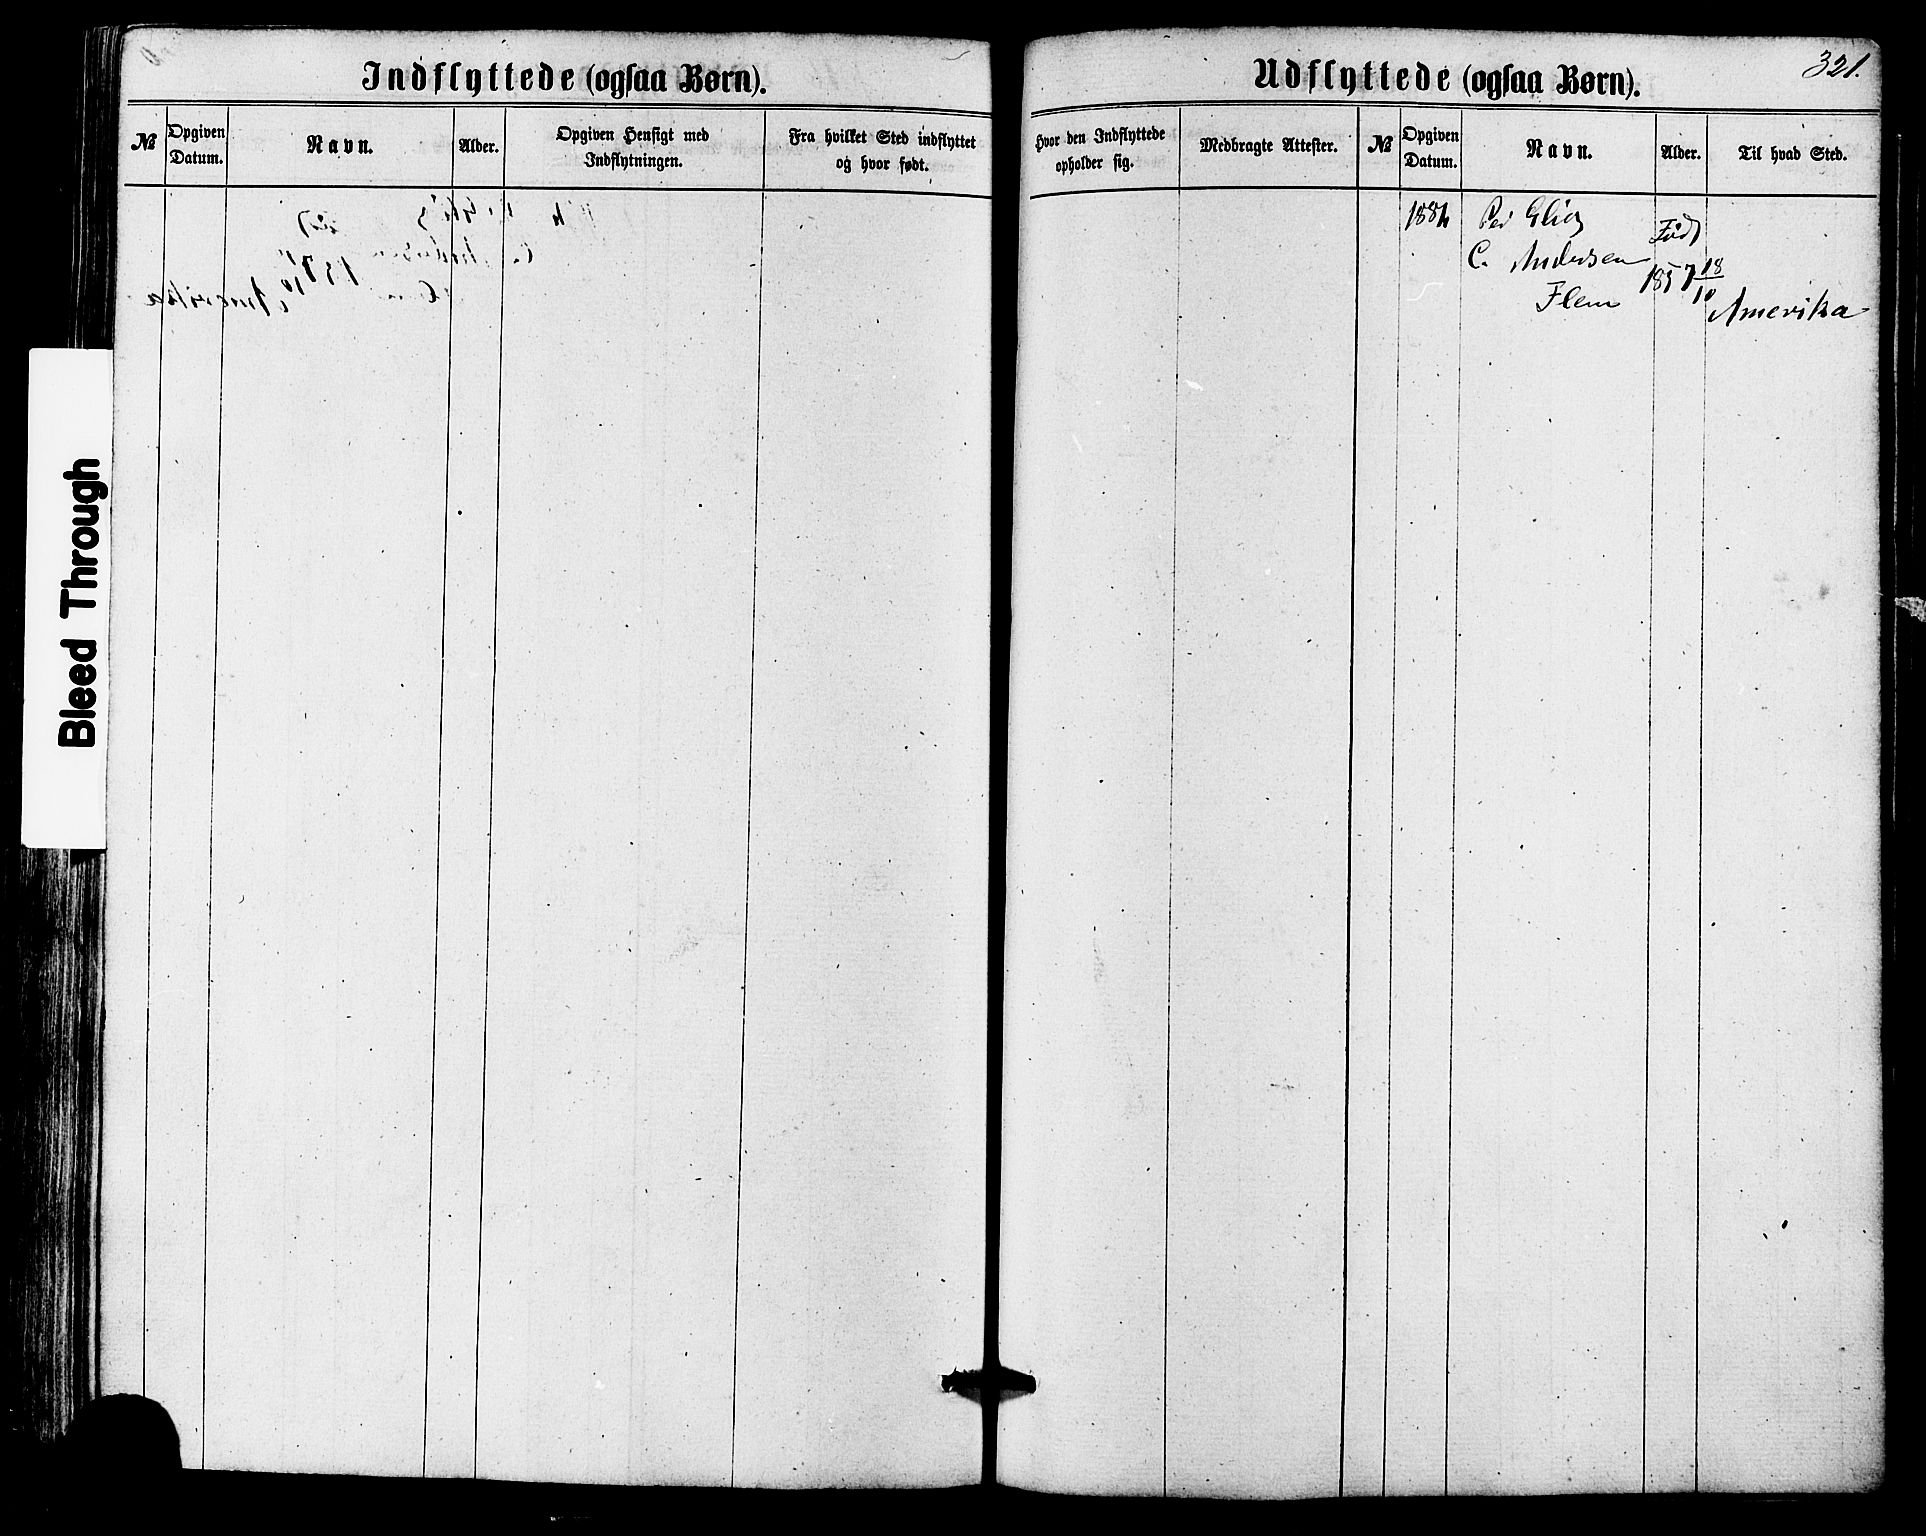 Indflyttede (ogsaa Børn).
№
Opgiven Datum.
Navn.
Alder.
Opgiven Hensigt med Indflytningen.
Fra hvilket Sted indflyttet og hvor født.
Udflyttede (ogsaa Børn).
321.
Hvor den Indflyttede opholder sig.
Medbragte Attester.
№
Opgiven Datum.
Navn.
Alder.
Til hvad Sted.
1884
Født
C. Andersen
1857 18/10
Flem
Amerika
Bleed Through